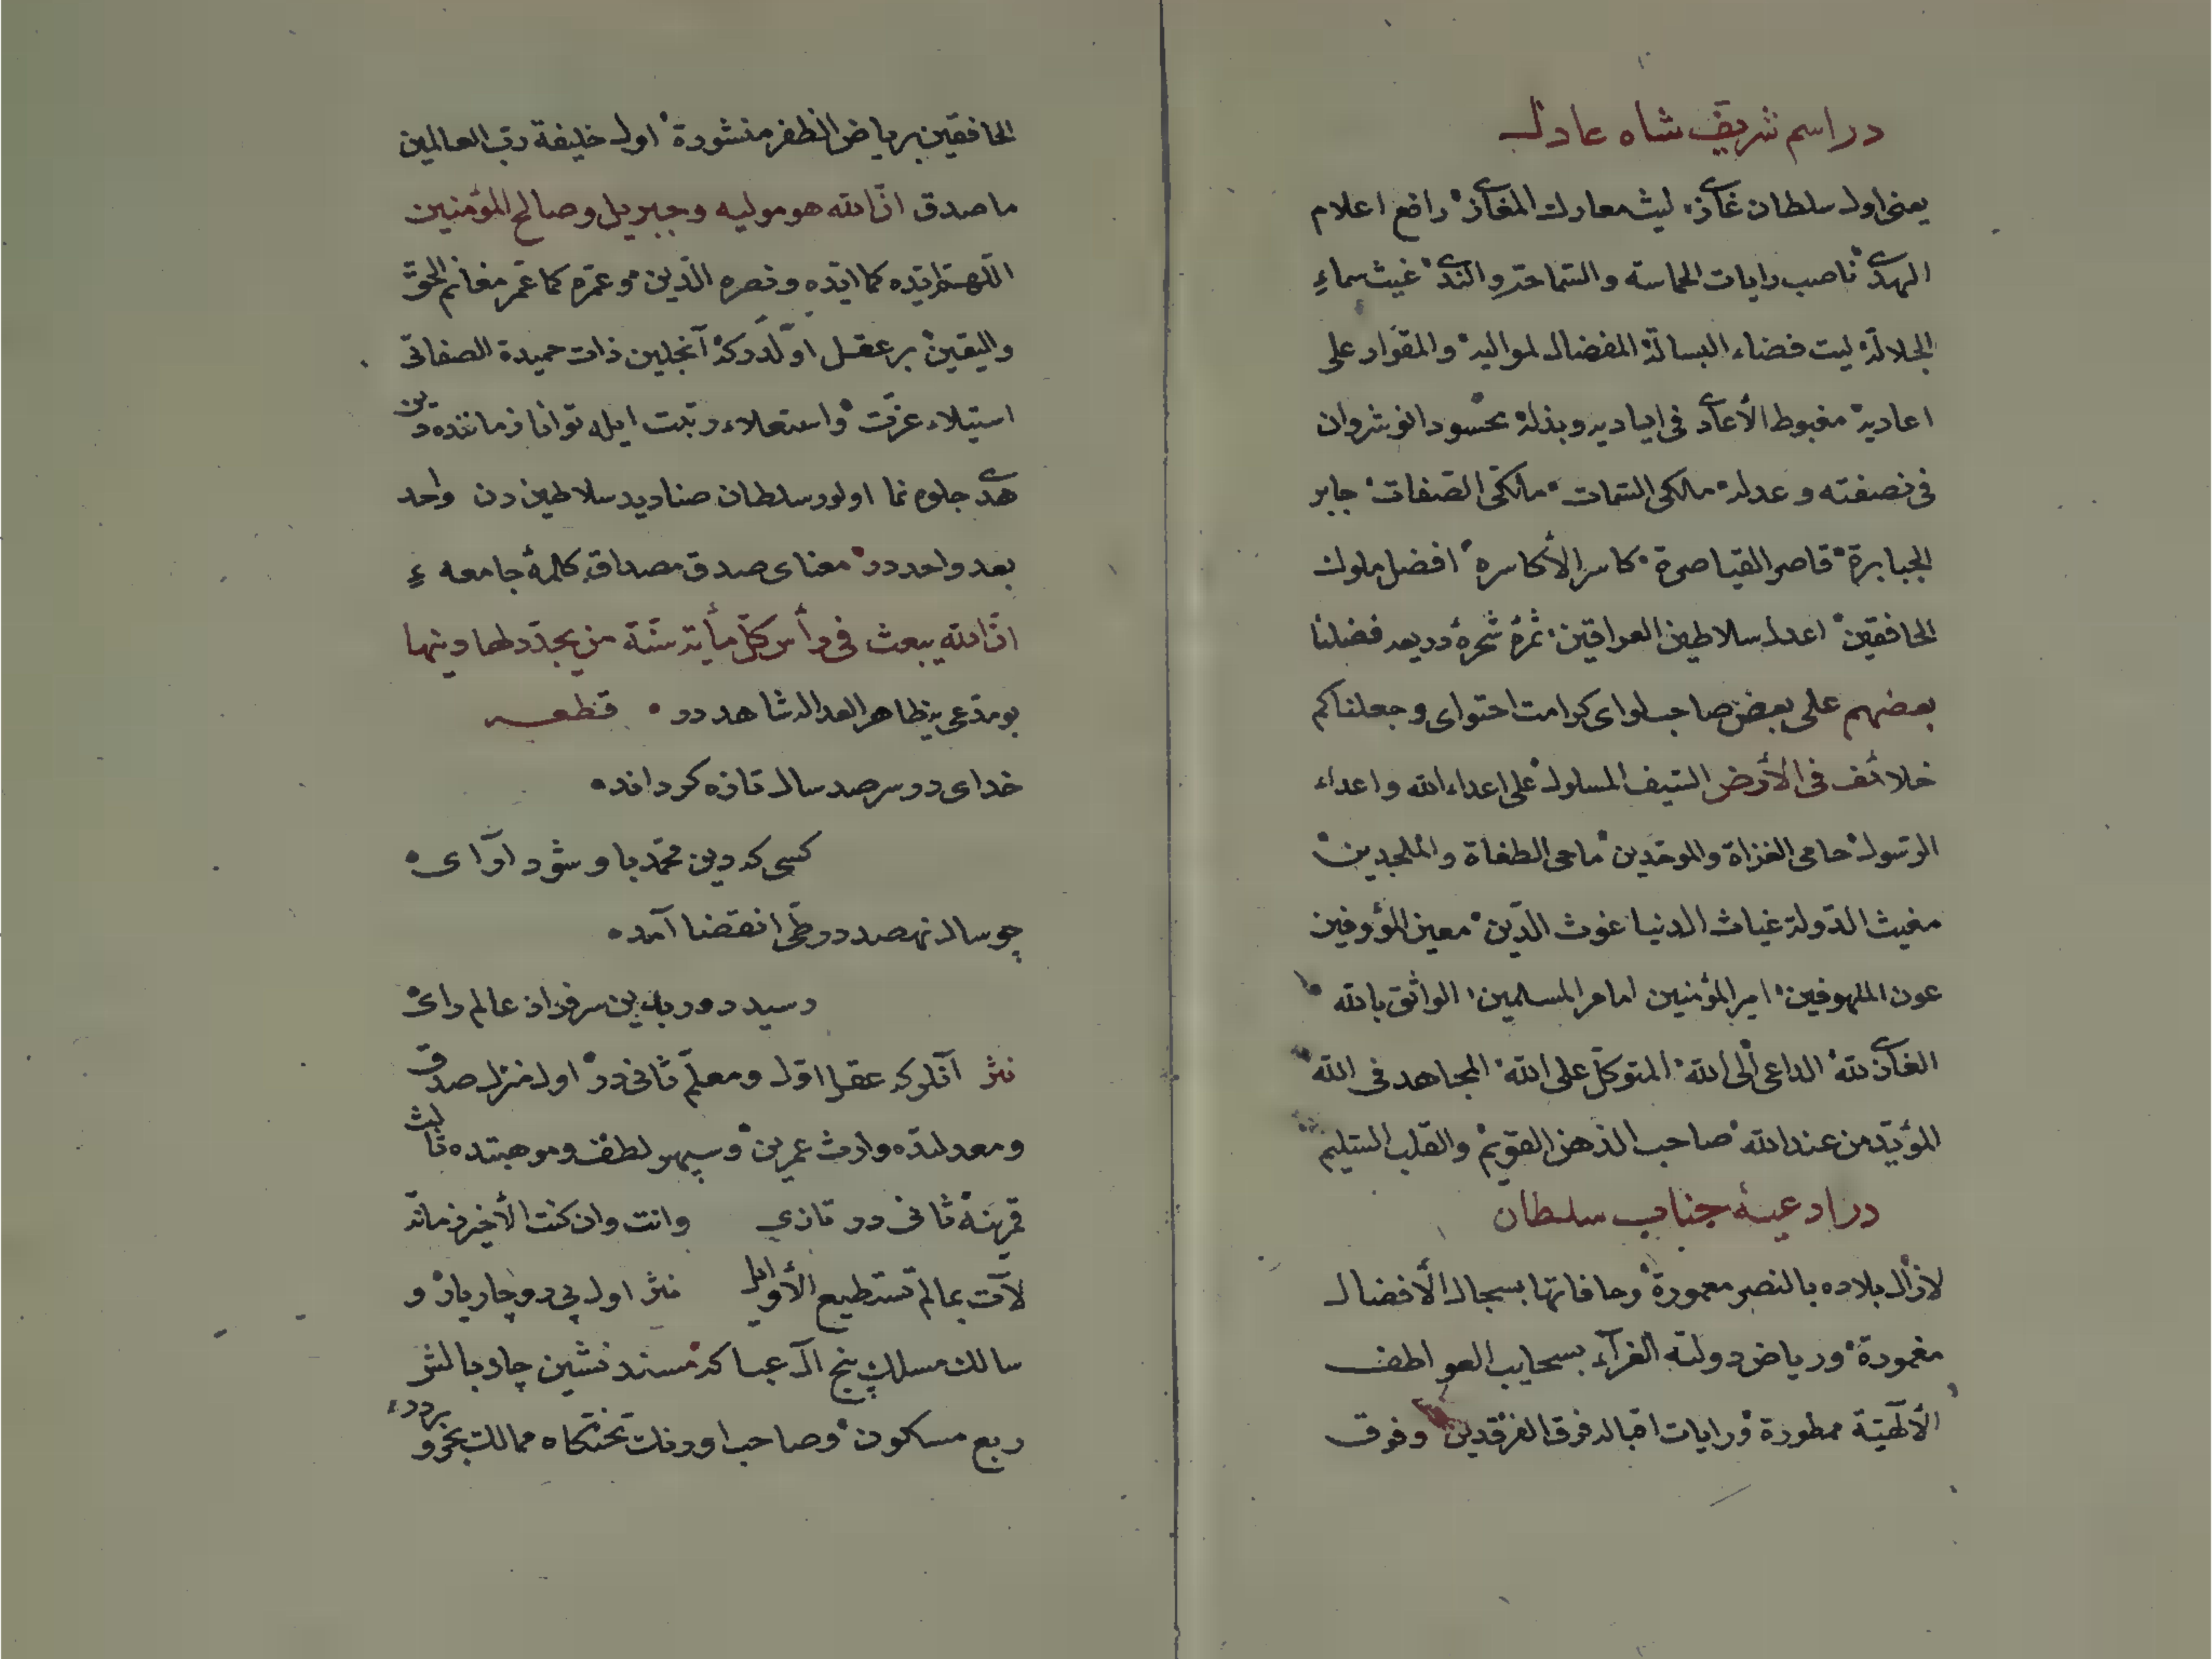 در اسم شریف شاه عادل
یعنی اول سلطان غازی لیث معارك المغازی رافع اعلام
الهدی ناصب رایات الحماسه والسماحة والندی غیث سماء
الجلالة لیث فضاء البسالة المفضال لموالیه والمقوار علی
اعادیه مغبوط الأعادی فی ایادیه وبذله محسود انوشروان
فی نصفته وعدله مالکی السمات ملکی الصفات جابر
الجبابرة قاصر القیاصرة کاسر الأکاسره افضل ملوك
الخافقین اعدل سلاطین العراقین ثمرهٔ شجرهٔ فضلنا
بعضهم علی بعض صاحب لوای کرامت احتوای وجعلناکم
خلائف فی الأرض السیف المسلول علی اعداء الله واعداء
الرسول حامی الغزاة والموحدین ماحی الطغاة والملحدین
مغیث الدولة غیاث الدنیا غوث الدین معین المؤوفین
عون الملهوفین امیر المؤمنین امام المسلمین الواثق بالله
الغازی لله الداعی الی الله المتوکل علی الله المجاهد فی الله
المؤید من عند الله صاحب الذهن القویم والقلب السلیم
در ادعیهٔ جناب سلطان
لازال بلاده بالنصر معمورة وحافاتها بسجال الأفضال
مغمورة وریاض دولته الغرآء بسحایب العواطف
الألٰهیّة ممطورة ورایات اقباله فرق الفرقدین وفوق
الخافقین بریاض الظفر منشورة اول خلیفة رب العالمین
ما صدق انّ الله هو مولیه وجبریل وصالح المؤمنین
اللهم ایّده کما ایّده ونصره الدین وعمّره کما عمّر مغانم الحق
والیقین بر عقل اوّلدر که آنجلین ذات حمیدة الصفاتی
استیلاء عزّت واستعلاء رتبت ایله توانا زماننده دین
هدی جلوه نما اولور سلطان صنادید سلاطین دن واحد
بعد واحد در معنای صدق مصداق کلمهٔ جامعهء
انّ الله یبعث فی رأس کلّ مأیة سنة من یجدّد لها دینها
بو مدّعی یه ظاهر العداله شاهد در قطعه
خدای در سر صد سال تازه کرداند
کسی که دین محمّد باو شود آرای
چو سال نهصد در طی انقضا آمد
رسید دور بدین سرفراز عالم رای
نثر آنلر که عقل اوّل ومعلّم ثانی در اول منزل صدق
ومعدلتده وارث عمرین وسپهر لطف وموهبتده ثالث
قمرینه ثانی در تازی وانت وان کنت الأخیر زمانه
لآت بما لم تستطیع الأوایل نثر اول پی رو چار یار و
سالك مسلك پنج آل عبا که مسند نشین چار بالش
ربع مسکون وصاحب اورنك تختکاه ممالك بحر و بردر